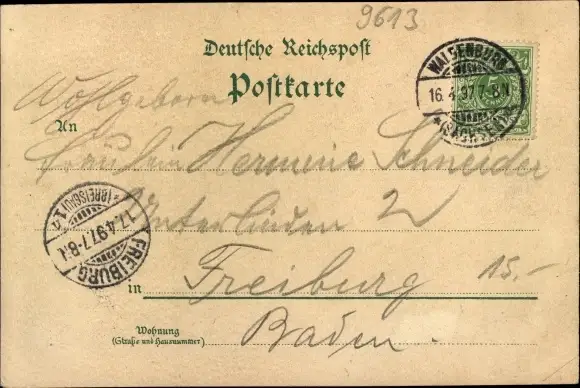 9613
Deutsche Reichspost
Postkarte
WALDENBURG
16.4.97.7-8.N.
* (SACHSEN) *
5
Wohlgeboren
An
Fräulein Hermine Schneider
Unterlinden 2
* (BREISGAU) 1.a
17.4.97.7-8.N.
FREIBURG
in Freiburg
15.-
Baden.
Wohnung
(Straße und Hausnummer)